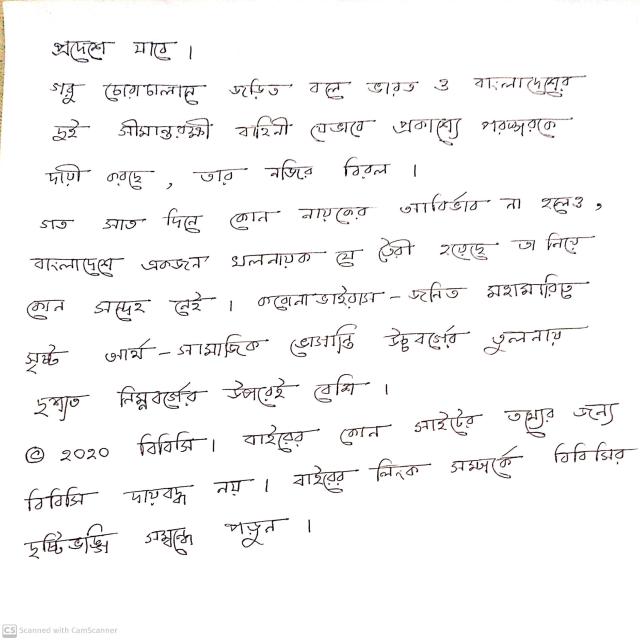 প্রদেশে যাবে ।
গরু চোরাচালানে জড়িত বলে ভারত ও বাংলাদেশের
দুই সীমান্তরক্ষী বাহিনী যেভাবে প্রকাশ্যে পরস্পরকে
দায়ী করছে , তার নজির বিরল ।
গত সাত দিনে কোন নায়কের আবির্ভাব না হলেও ,
বাংলাদেশে একজন খলনায়ক যে তৈরী হয়েছে তা নিয়ে
কোন সন্দেহ নেই । করোনাভাইরাস - জনিত মহামারিতে
সৃষ্ট আর্থ - সামাজিক ভোগান্তি উচ্চবর্গের তুলনায়
দৃশ্যত নিম্নবর্গের উপরেই বেশি ।
© 2020 বিবিসি । বাইরের কোন সাইটের তথ্যের জন্য
বিবিসি দায়বদ্ধ নয় । বাইরের লিংক সম্পর্কে বিবিসির
দৃষ্টিভঙ্গি সম্বন্ধে পড়ুন ।
CS Scanned with CamScanner